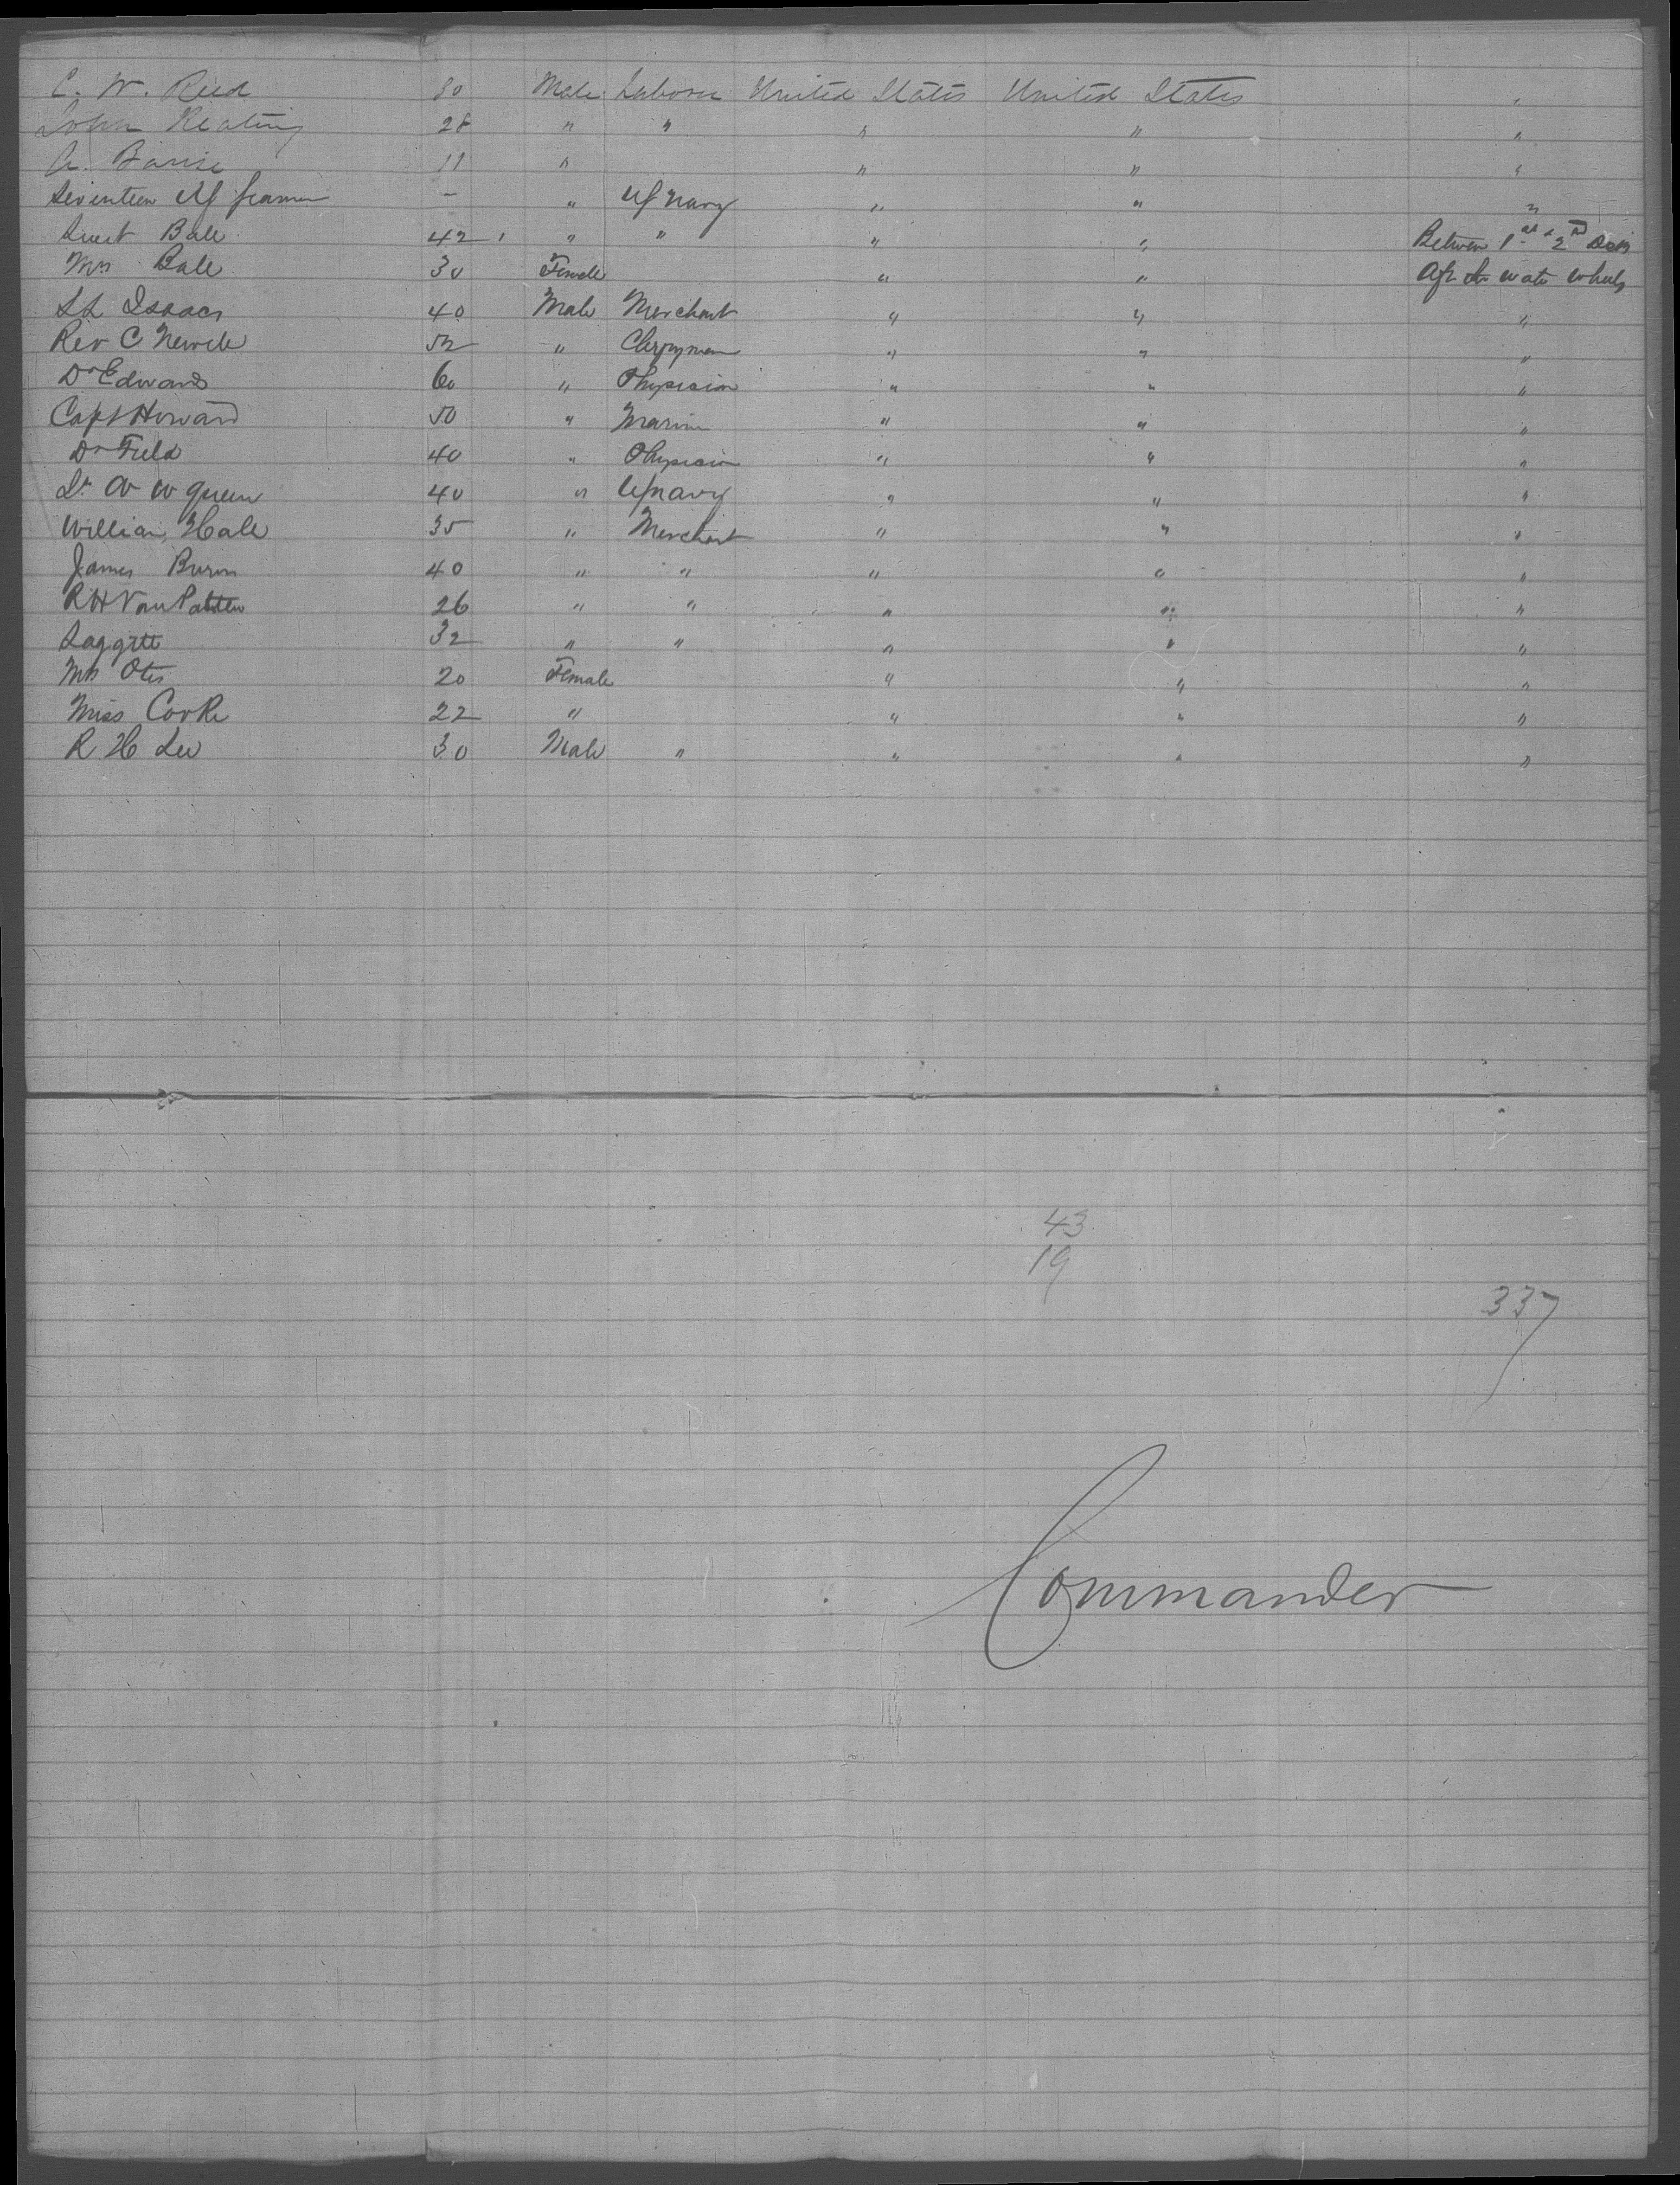 C. W. Reed 30 Male Laborer United States United States "
John Keating 28 " " " " "
A. 11 " " " "
Seventeen US Seamen - " US Navy " " "
Lieut Ball 42 " " " " Between 1st & 2nd Deck
Mrs Ball 30 Female " " Aft the water wheels
Isaacs 40 Male Merchant " " "
Rev C 52 " Clergyman " " "
Dr Edwards 60 " Physician " " "
Capt Howard 50 " Marine " " "
Dr Field 40 " Physician " " "
Lt W W Queen 40 " US Navy " " "
William Hall 35 " Merchant " " "
James 40 " " " " "
R H Van Patten 26 " " " " "
32 " " " " "
Mrs Otis 20 Female " " "
Miss Cooke 22 " " " "
R H Lee 30 Male " " " "
43
19
337
Commander